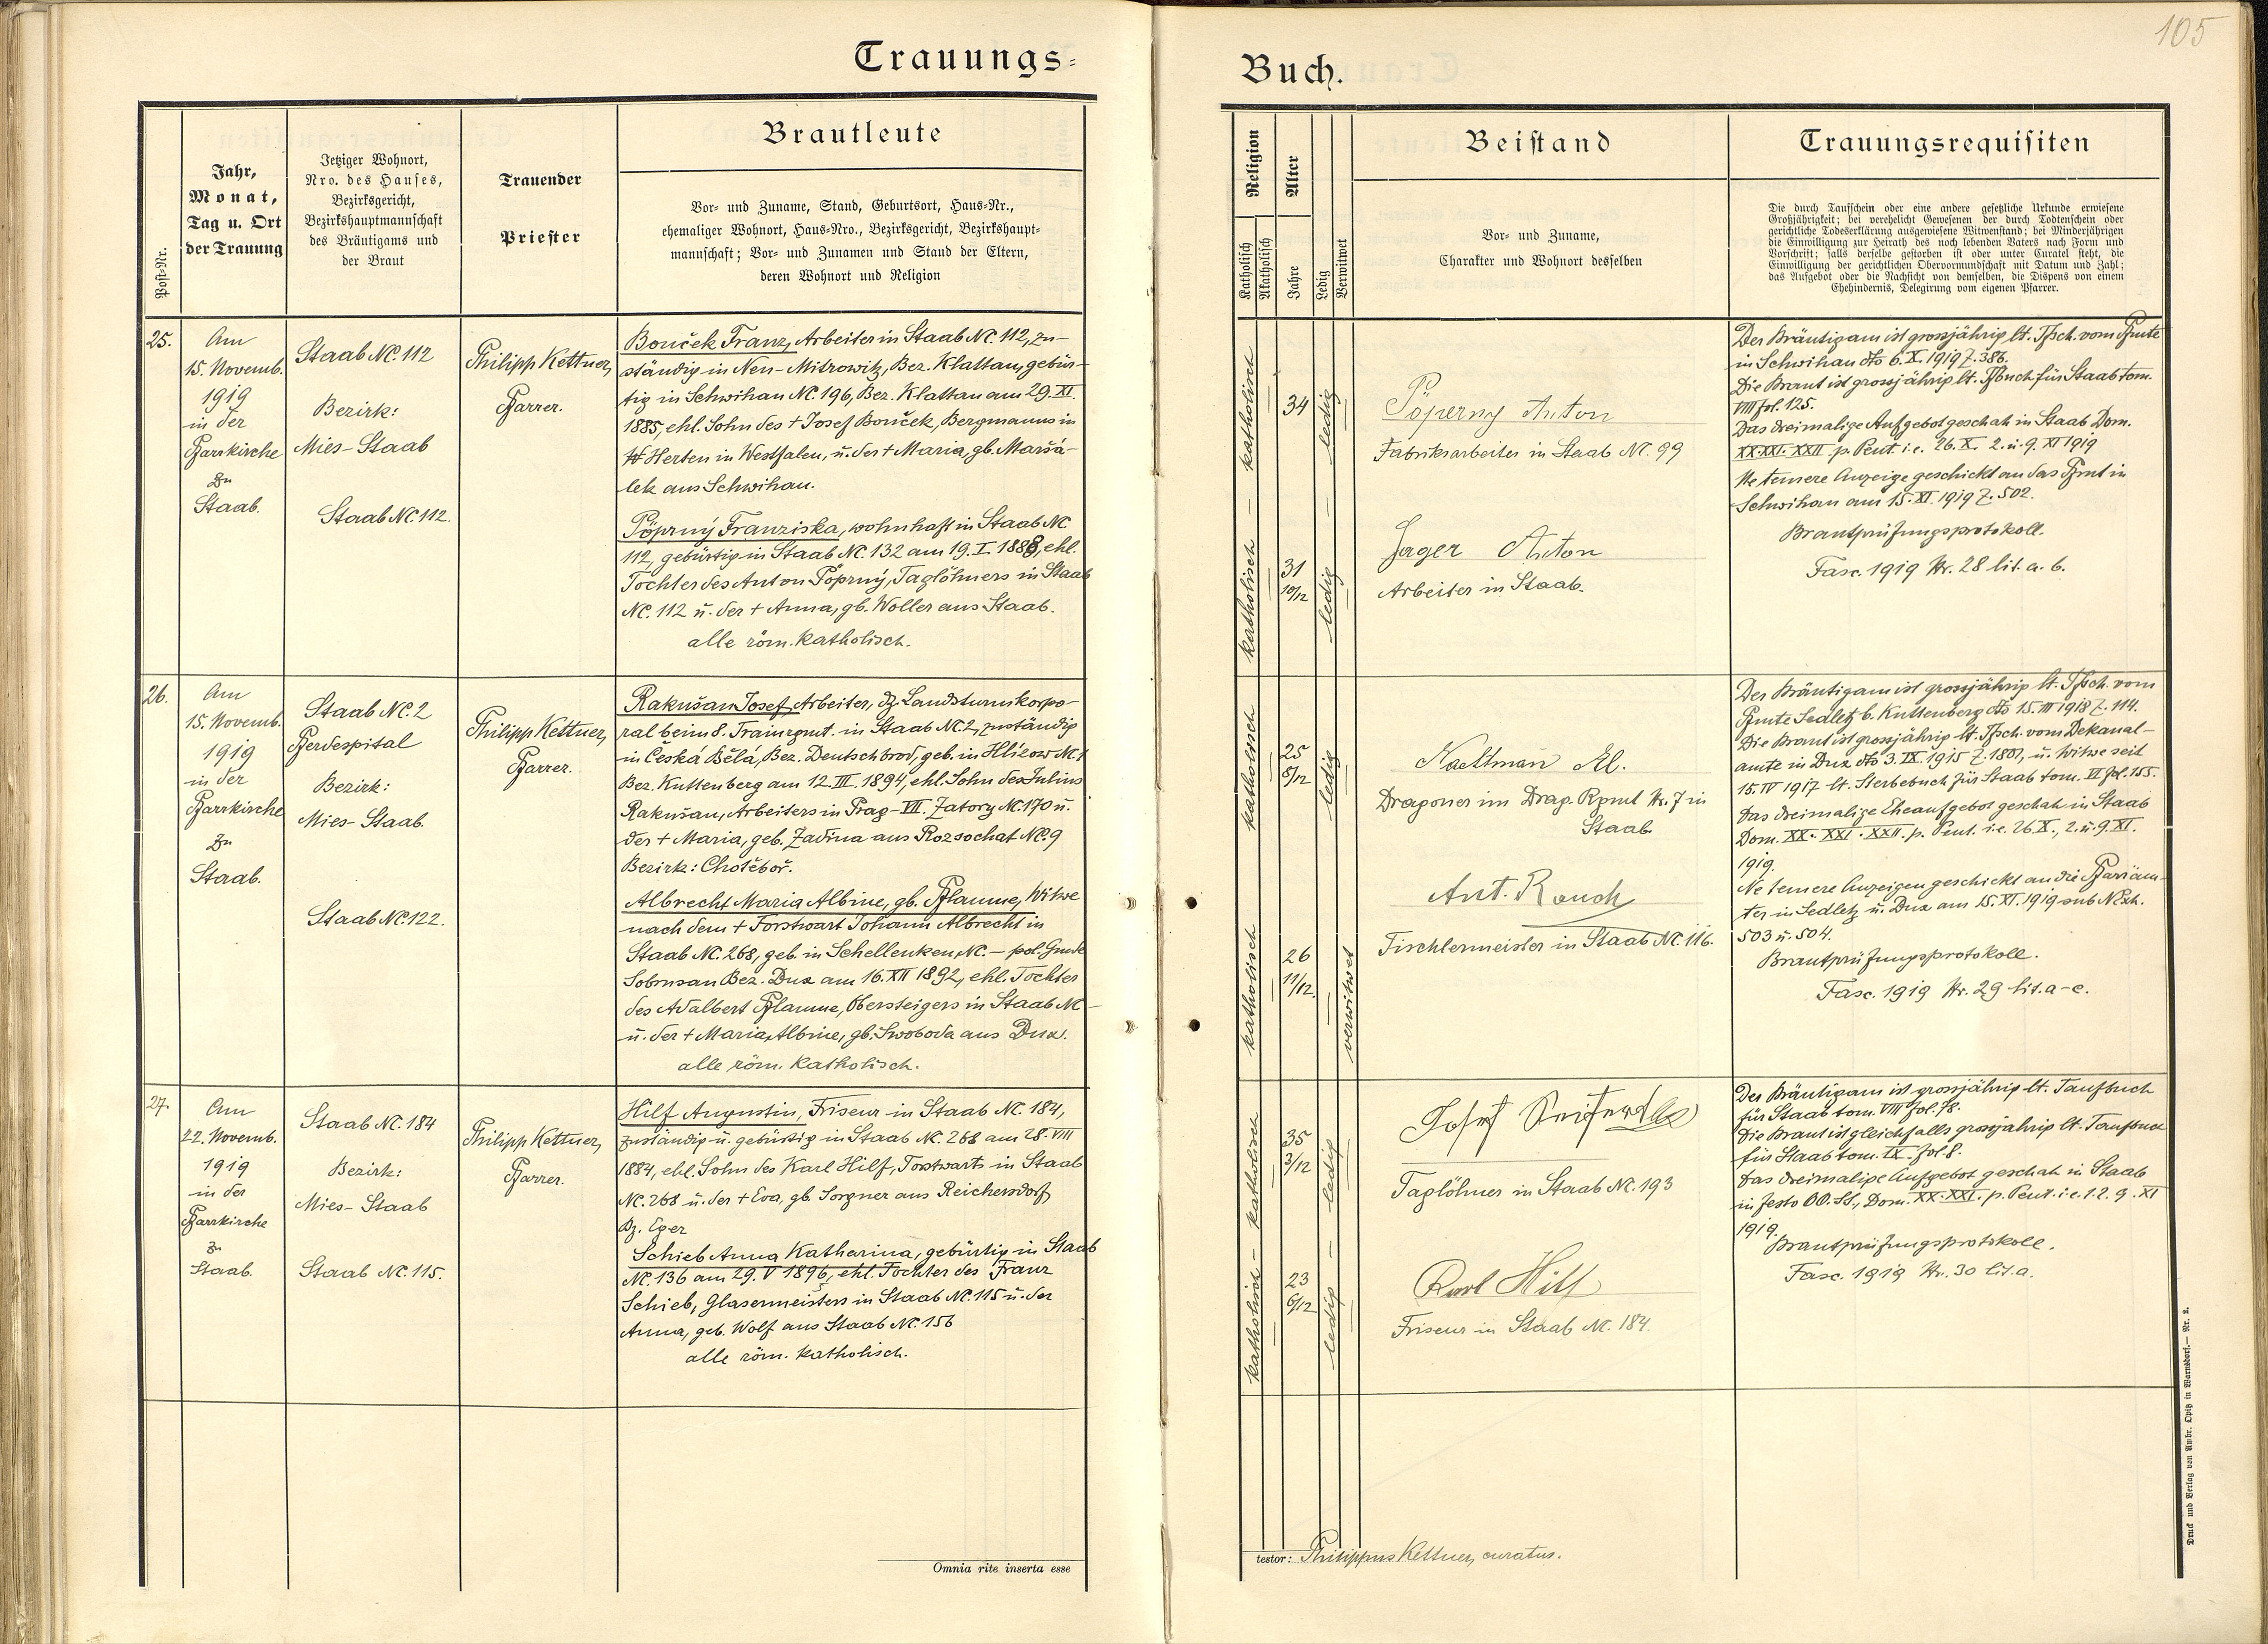 105
Trauungs=
Buch.
Post-Nr.
Jahr,
Monat,
Tag u. Ort
der Trauung
Jetziger Wohnort,
Nro. des Hauses,
Bezirksgericht,
Bezirkshauptmannschaft
des Bräutigams und
der Braut
Trauender
Priester
Brautleute
Vor- und Zuname, Stand, Geburtsort, Haus-Nr.,
ehemaliger Wohnort, Haus-Nro., Bezirksgericht, Bezirkshaupt-
mannschaft; Vor- und Zunamen und Stand der Eltern,
deren Wohnort und Religion
Religion
Katholisch
Akatholisch
Alter
Jahre
Ledig
Verwitwet
Beistand
Vor- und Zuname,
Charakter und Wohnort desselben
Trauungsrequisiten
Die durch Taufschein oder eine andere gesetzliche Urkunde erwiesene
Großjährigkeit; bei verehelicht Gewesenen der durch Todtenschein oder
gerichtliche Todeserklärung ausgewiesene Witwenstand; bei Minderjährigen
die Einwilligung zur Heirath des noch lebenden Vaters nach Form und
Vorschrift; falls derselbe gestorben ist oder unter Curatel steht, die
Einwilligung der gerichtlichen Obervormundschaft mit Datum und Zahl;
das Aufgebot oder die Nachsicht von demselben, die Dispens von einem
Ehehindernis, Delegirung vom eigenen Pfarrer.
25.
Am
15. Novemb.
1919
in der
Pfarrkirche
zu
Staab.
Staab NC. 112
Bezirk:
Mies-Staab
Staab NC. 112.
Philipp Kettner,
Pfarrer.
Bouček Franz, Arbeiter in Staab NC. 112, zu-
ständig in Neu-Mitrowitz, Bez. Klattau, gebür-
tig in Schwihau NC. 196, Bez. Klattau am 29. XI.
1885, ehl. Sohn des + Josef Bouček, Bergmanns in
Herten in Westfalen, u. der + Maria, gb. Maršá-
lek aus Schwihau.
Pöprný Franziska, wohnhaft in Staab NC
112, gebürtig in Staab NC. 132 am 19. I. 1888, ehl.
Tochter des Anton Pöprný, Taglöhners in Staab
NC. 112 u. der + Anna, gb. Woller aus Staab.
alle röm. katholisch.
katholisch — katholisch
34
31
10/12
ledig — ledig
Pöperny Anton
Fabriksarbeiter in Staab NC. 99
Jager Anton
Arbeiter in Staab.
Der Bräutigam ist grossjährig lt. Tfsch. vom Pfmte
in Schwihau dto 6. X. 1919 Z. 386.
Die Braut ist grossjährig lt. Tfbuch für Staab tom.
VIII fol. 125.
Das dreimalige Aufgebot geschah in Staab Dom.
XX. XXI. XXII. p. Pent. i.e. 26. X. 2. u. 9. XI 1919
Ne temere Anzeige geschickt an das Pfmt in
Schwihau am 15. XI. 1919 Z. 502.
Brautprüfungsprotokoll.
Fasc. 1919 Nr. 28 lit. a. b.
26.
Am
15. Novemb.
1919
in der
Pfarrkirche
zu
Staab.
Staab NC. 2
Pferdespital
Bezirk:
Mies-Staab.
Staab NC. 122.
Philipp Kettner,
Pfarrer.
Rakušan Josef, Arbeiter, dz. Landsturmkorpo-
ral beim 8. Trainrgmt. in Staab NC. 2, zuständig
in Česká Bělá, Bez. Deutschbrod, geb. in Hlizow NC. 1
Bez. Kuttenberg am 12. III. 1894, ehl. Sohn des Julius
Rakušan, Arbeiters in Prag-VII. Zatory NC. 170 u.
der + Maria, geb. Zadina aus Rozsochat NC. 9
Bezirk: Chotěboř.
Albrecht Maria Albine, gb. Pflaume, Witwe
nach dem + Forstwart Johann Albrecht in
Staab NC. 268, geb. in Schellenken, NC. — pol. Gmde
Sobrusan Bez. Dux am 16. XII 1892, ehl. Tochter
des Adalbert Pflaume, Obersteigers in Staab NC —
u. der + Maria Albine, gb. Swoboda aus Dux.
alle röm. katholisch.
katholisch katholisch
25
8/12
26
11/12.
ledig —
verwitwet
Al.
Dragoner im Drag. Rgmt Nr. 7 in
Staab.
Ant. Rauch
Tischlermeister in Staab NC. 116.
Der Bräutigam ist grossjährig lt. Tfsch. vom
Pfmte Sedletz b. Kuttenberg dto 15. III 1918 Z. 114.
Die Braut ist grossjährig lt. Tfsch. vom Dekanal-
amte in Dux dto 3. IX. 1915 Z. 1801, u. Witwe seit
15. IV 1917 lt. Sterbebuch für Staab tom. VI fol. 155.
Das dreimalige Eheaufgebot geschah in Staab
Dom. XX. XXI. XXII. p. Pent. i.e. 26. X., 2. u. 9. XI.
1919.
Ne temere Anzeigen geschickt an die Pfarräm-
ter in Sedletz u. Dux am 15. XI. 1919 sub NExh.
503 u. 504.
Brautprüfungsprotokoll.
Fasc. 1919 Nr. 29 lit. a-c.
27.
Am
22. Novemb.
1919
in der
Pfarrkirche
zu
Staab.
Staab NC. 184
Bezirk:
Mies-Staab
Staab NC. 115.
Philipp Kettner,
Pfarrer.
Hilf Augustin, Friseur in Staab NC. 184,
zuständig u. gebürtig in Staab NC. 268 am 28. VIII
1884, ehl. Sohn des Karl Hilf, Forstwarts in Staab
NC. 268 u. der + Eva, gb. Sorgner aus Reichersdorf,
Bz. Eger
Schieb Anna Katharina, gebürtig in Staab
NC. 136 am 29. V 1896, ehl. Tochter des Franz
Schieb, Glasermeisters in Staab NC. 115 u. der
Anna, geb. Wolf aus Staab NC. 156
alle röm. katholisch.
katholisch — katholisch
35
3/12
23
6/12
ledig — ledig
Josef
Taglöhner in Staab NC. 193
Karl Hilf
Friseur in Staab NC. 184.
Der Bräutigam ist grossjährig lt. Taufbuch
für Staab tom. VIII fol. 78.
Die Braut ist gleichfalls grossjährig lt. Taufbuch
für Staab tom. IX. fol. 8.
Das dreimalige Aufgebot geschah in Staab
in festo OO. SS., Dom. XX. XXI. p. Pent. i.e. 1. 2. 9. XI
1919.
Brautprüfungsprotokoll.
Fasc. 1919 Nr. 30 lit. a.
Omnia rite inserta esse
testor: Philippus Kettner, curatus.
Druck und Verlag von Ambr. Opitz in Warnsdorf. — Nr. 2.